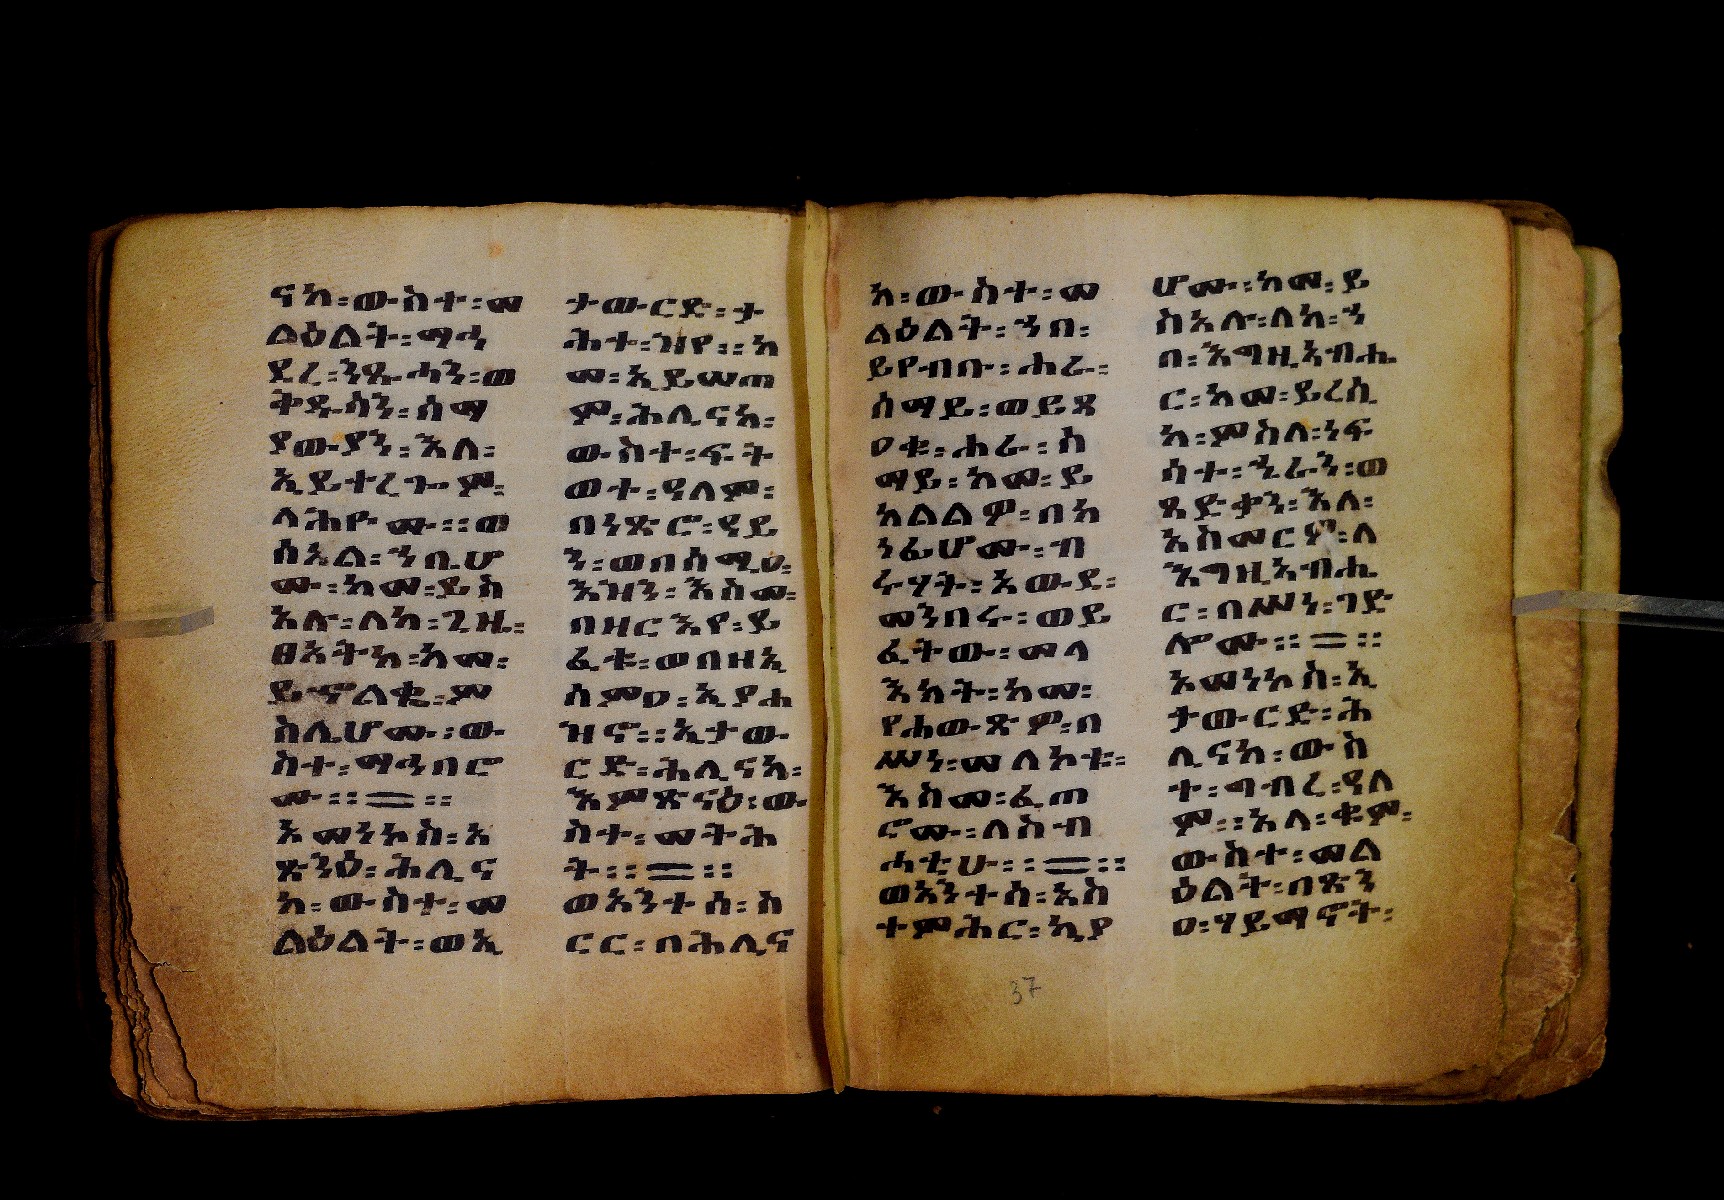 ናከ፡ውስተ፡መ
ልዕልት፡ማኅ
ደረ፡ንጹሓን፡ወ
ቅዱሳን፡ሰማ
ያውያን፡እለ፡
ኢይተረጐም፡
ላሕዮሙ፡፡ወ
ሰአል፡ኀቢሆ
ሙ፡ከመ፡ይስ
አሉ፡ለከ፡ጊዜ፡
ፀአትከ፡አመ፡
ምስሊሆሙ፡ው
ስተ፡ማኅበሮ
ሙ፡፡፡፡
እመነኮስ፡አ
ጽንዕ፡ሕሊና
ከ፡ውስተ፡መ
ልዕልት፡ወኢ
ታውርድ፡ታ
ሕተ፡ገጸ፡፡ከ
መ፡ኢይሠጠ
ም፡ሕሊናከ፡
ውስተ፡ፍት
ወተ፡ዓለም፡
በነጽሮ፡ዓይ
ን፡ወበሰሚዐ፡
እዝን፡እስመ፡
በዘርእየ፡ይ
ፈቱ፡ወበዘኢ
ሰምዐ፡ኢያሐ
ዝኖ፡፡ኢታው
ርድ፡ሕሊናከ፡
እምጽናዕ፡ው
ስተ፡መትሕ
ት፡፡፡፡
ወአንተሰ፡ስ
ርር፡በሕሊና
ከ፡ውስተ፡መ
ልዕልት፡ኀበ፡
ይየብቡ፡ሐራ፡
ሰማይ፡ወይጸ
ዐቁ፡ሐራ፡ሰ
ማይ፡ከመ፡ይ
ከልልዎ፡በክ
ነፊሆሙ፡ብ
ሩሃት፡አውደ፡
መንበሩ፡ወይ
ፈትው፡መላ
እክት፡ከመ፡
የሐውጽዎ፡በ
ሥነ፡መለኮቱ፡
እስመ፡ፈጠ
ሮሙ፡ለስብ
ሓቲሁ፡፡፡፡
ወአንተሰ፡አስ
ተምሕር፡ኪያ
ሆሙ፡ከመ፡ይ
ስአሉ፡ለከ፡ኀ
በ፡እግዚአብሔ
ር፡ከመ፡ይረሲ
ከ፡ምስለ፡ነፍ
ሳተ፡ኄራን፡ወ
ጻድቃን፡እለ፡
አስመርዎ፡ለ
እግዚአብሔ
ር፡በሥነ፡ገድ
ሎሙ፡፡፡፡
እመነኮስ፡ኢ
ታውርድ፡ሕ
ሊናከ፡ውስ
ተ፡ግብረ፡ዓለ
ም፡፡አላ፡ቁም፡
ውስተ፡መል
ዕልት፡በጽን
ዐ፡ሃይማኖት፡
37